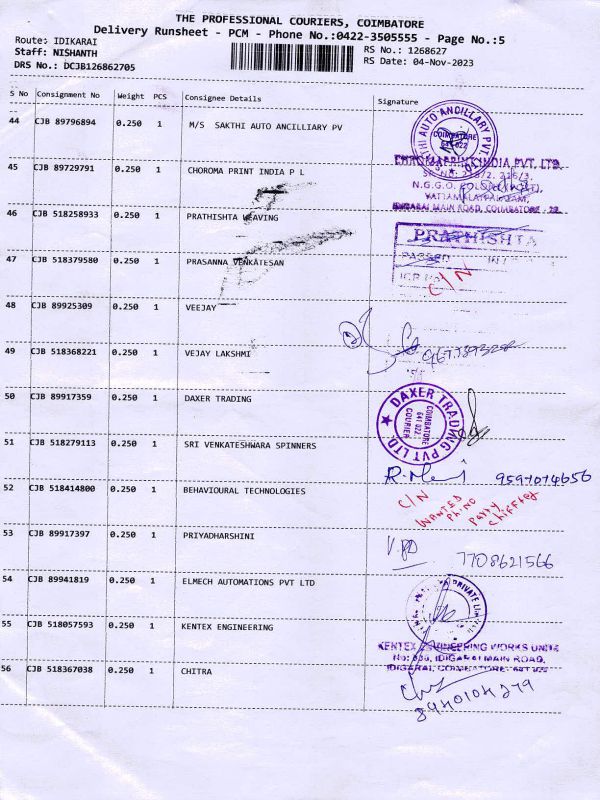 THE PROFESSIONAL COURIERS, COIMBATORE
Delivery Runsheet - PCM - Phone No.:0422-3505555 - Page No.:5
Route: IDIKARAI
RS No.: 1268627
Staff: NISHANTH
RS Date: 04-Nov-2023
DRS No.: DCJB126862705
S No Consignment No Weight PCS Consignee Details Signature
44 CJB 89796894 0.250 1 M/S SAKTHI AUTO ANCILLIARY PV
AUTO ANCILLARY PVT
COIMBATORE
641 022
45 CJB 89729791 0.250 1 CHOROMA PRINT INDIA P L
INDIA PVT. LTD.
N.G.G.O.
IDIGARAI MAIN ROAD, COIMBATORE - 22
46 CJB 518258933 0.250 1 PRATHISHTA WEAVING
PRATHISHTA
PASSED
47 CJB 518379580 0.250 1 PRASANNA VENKATESAN
C/N
48 CJB 89925309 0.250 1 VEEJAY
49 CJB 518368221 0.250 1 VEJAY LAKSHMI
50 CJB 89917359 0.250 1 DAXER TRADING
DAXER TRADING PVT LTD
COIMBATORE
641 022
COURIER
51 CJB 518279113 0.250 1 SRI VENKATESHWARA SPINNERS
9597074656
52 CJB 518414800 0.250 1 BEHAVIOURAL TECHNOLOGIES
C/N
WANTED
Ph.NO
Party
53 CJB 89917397 0.250 1 PRIYADHARSHINI
7708621566
54 CJB 89941819 0.250 1 ELMECH AUTOMATIONS PVT LTD
PRIVATE LIMITED
55 CJB 518057593 0.250 1 KENTEX ENGINEERING
KENTEX ENGINEERING WORKS UNIT
IDIGARAI MAIN ROAD,
IDIGARAI, COIMBATORE
56 CJB 518367038 0.250 1 CHITRA
8940104279